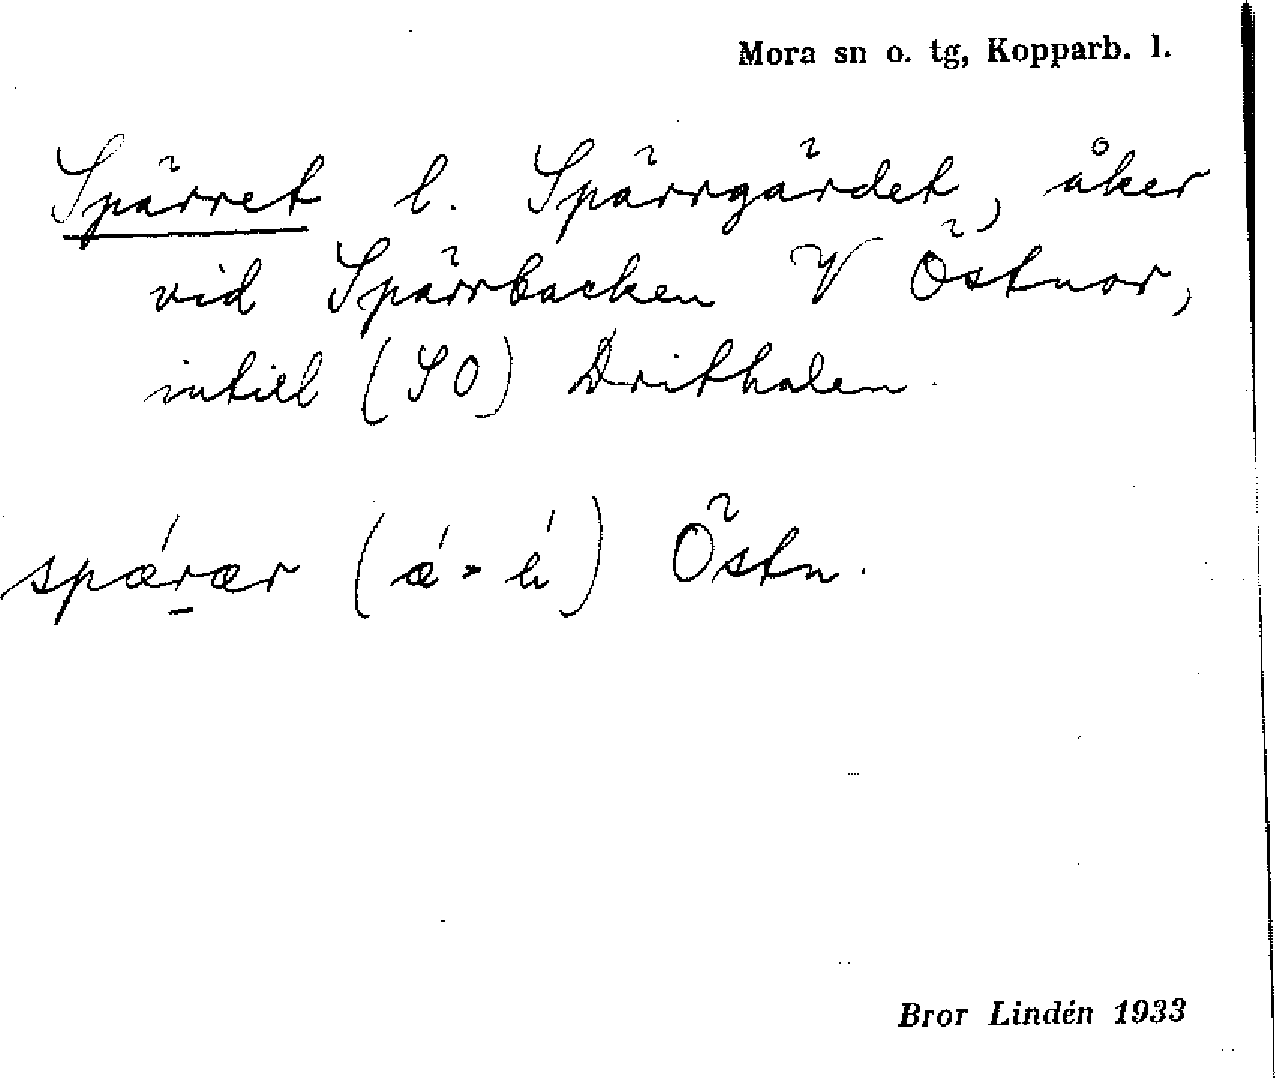 Mora sn o. tg, Kopparb. l.
Spärret l. Spärrgärdet, åker
vid Spärrbacken V Östnor,
intill (SO) Dritholen.
spǽrær (ǽ-é) Östn.
Bror Lindén 1933